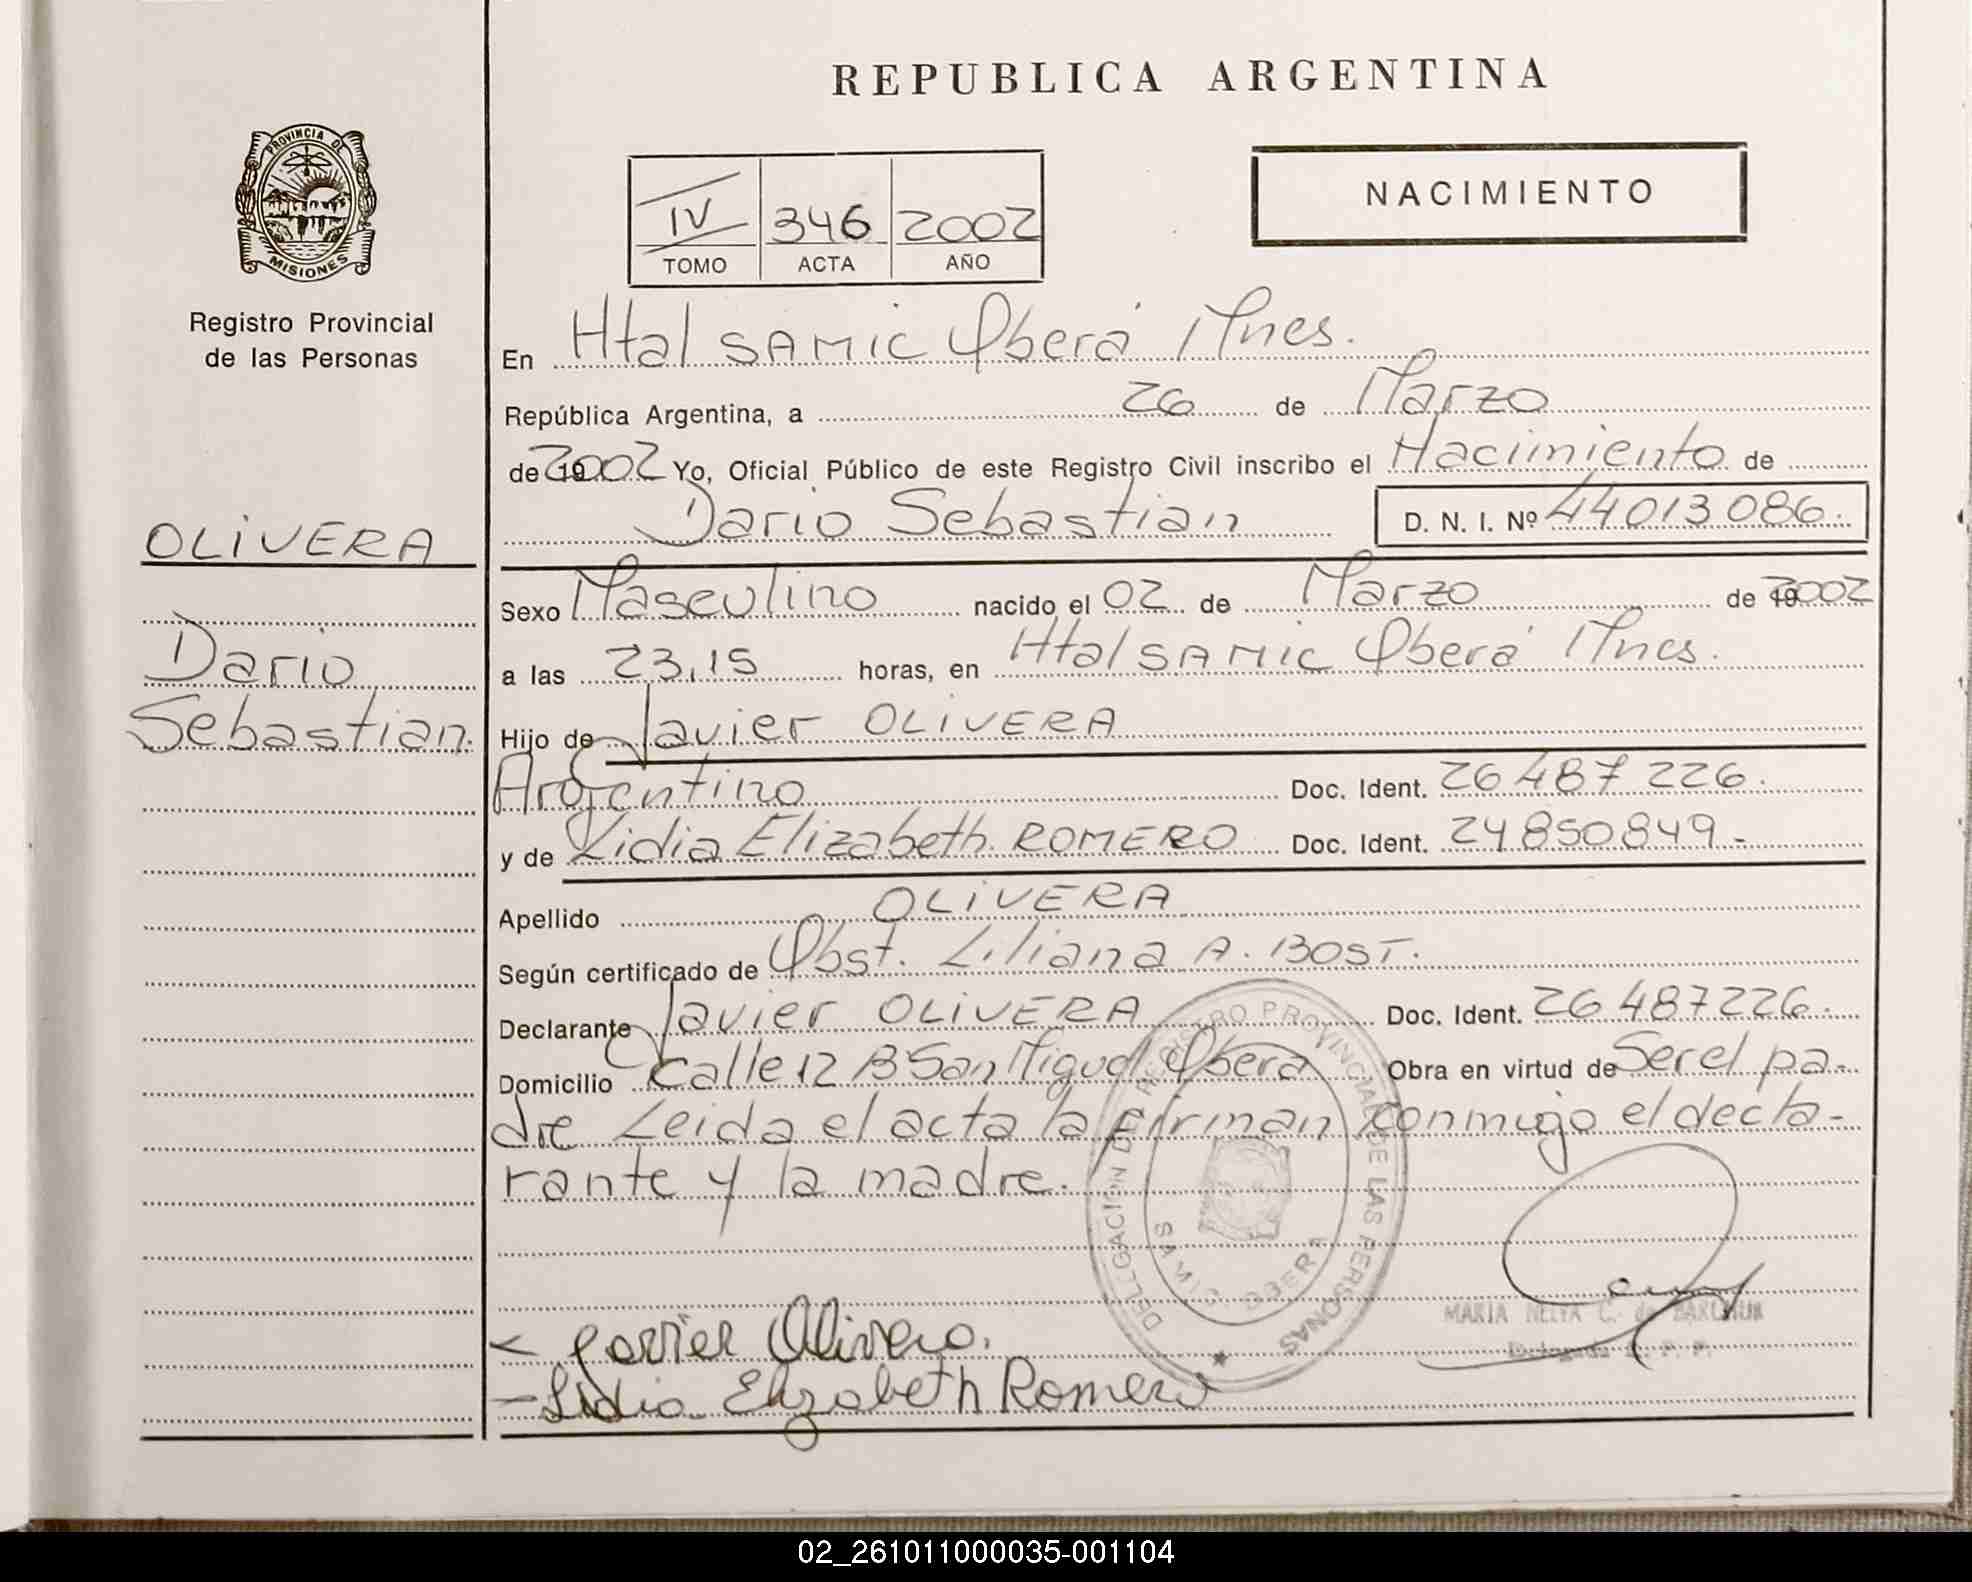 REPUBLICA ARGENTINA
PROVINCIA DE
MISIONES
Registro Provincial
de las Personas
IV 346 2002
TOMO ACTA AÑO
NACIMIENTO
OLIVERA
Dario
Sebastian.
En Htal SAMIC Oberá Mnes.
República Argentina, a 26 de Marzo
de 2002 Yo, Oficial Público de este Registro Civil inscribo el Nacimiento de
Dario Sebastian D. N. I. Nº 44013086.
Sexo Masculino nacido el 02 de Marzo de 2002
a las 23,15 horas, en Htal SAMIC Oberá Mnes.
Hijo de Javier OLIVERA
Argentino Doc. Ident. 26487226.
y de Lidia Elizabeth ROMERO Doc. Ident. 24850849.-
Apellido OLIVERA
Según certificado de Obst. Liliana A. BOST.
Declarante Javier OLIVERA Doc. Ident. 26487226.
Domicilio Calle 12 B San Miguel Oberá Obra en virtud de Ser el pa-
dre Leida el acta la firman conmigo el decla-
rante y la madre.
DELEGACION DE REGISTRO PROVINCIAL DE LAS PERSONAS
SAMIC. OBERA
MARIA C. de
Delegada R. P. P.
Javier Olivera.
- Lidia Elizabeth Romero
02_261011000035-001104